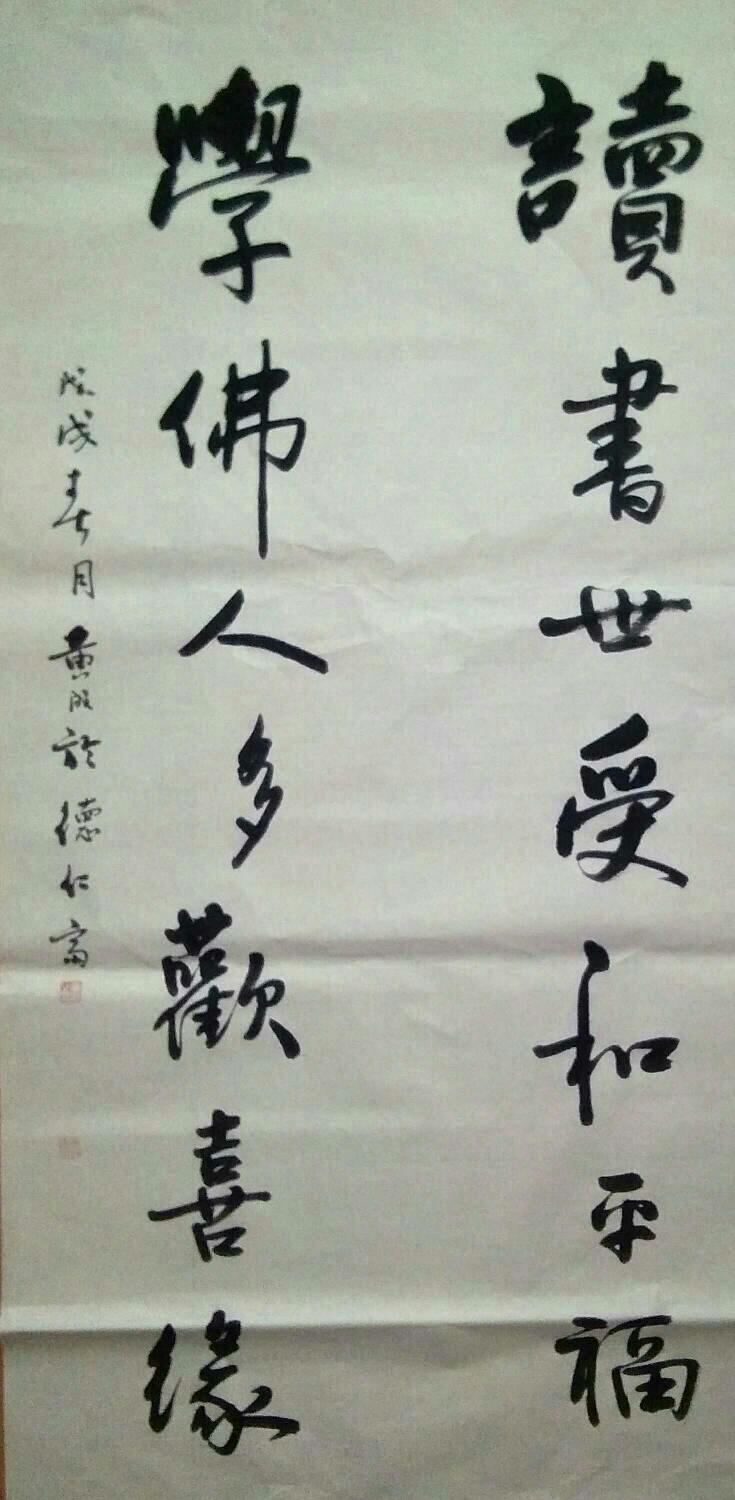 讀書世受和平福
學佛人多歡喜緣
戊戌春月黄明於德仁齋